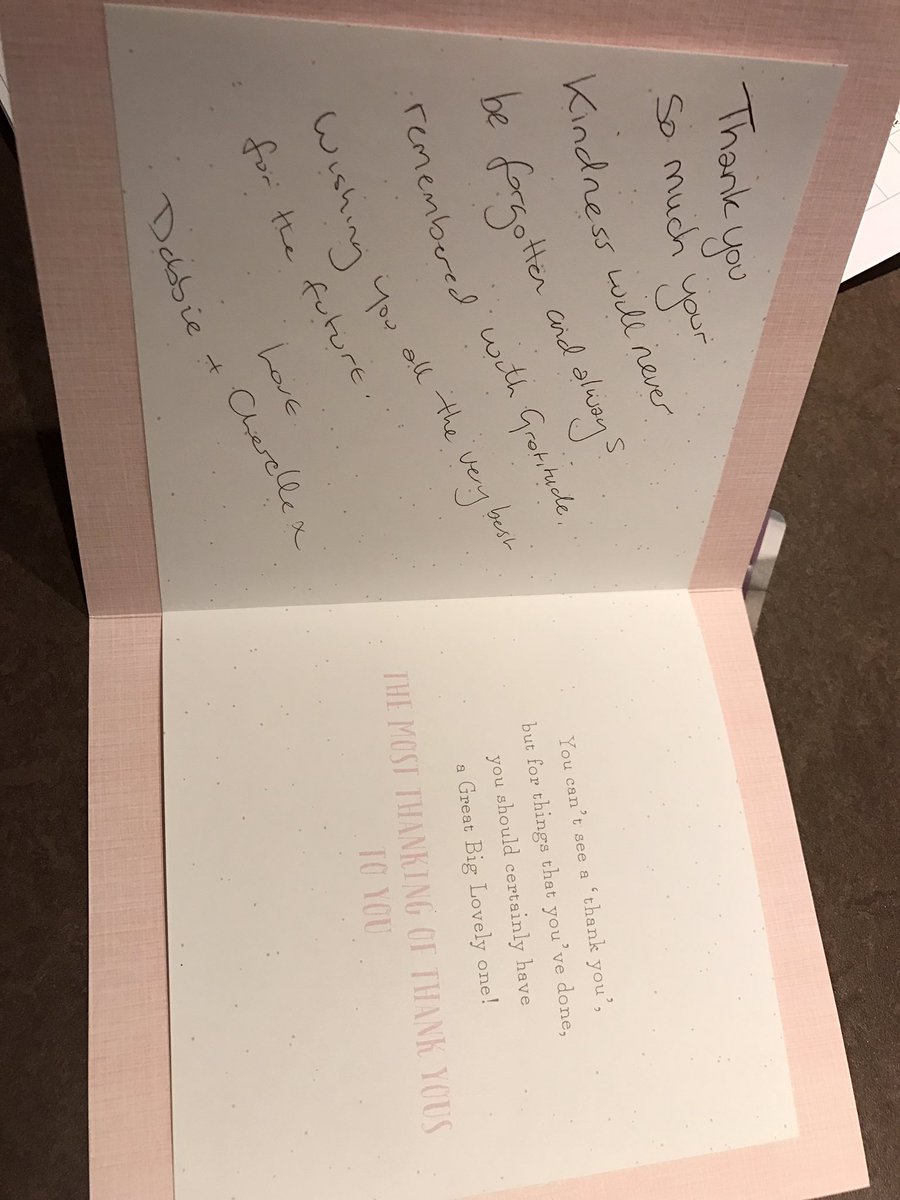 Thank you
so much your
Kindness will never
be forgotten and always
remembered with Gratitude.
Wishing you all the very best
for the future.
love
Debbie + Cherelle x
You can't see a 'thank you',
but for things that you've done,
you should certainly have
a Great Big Lovely one!
THE MOST THANKING OF THANK YOUS
TO YOU